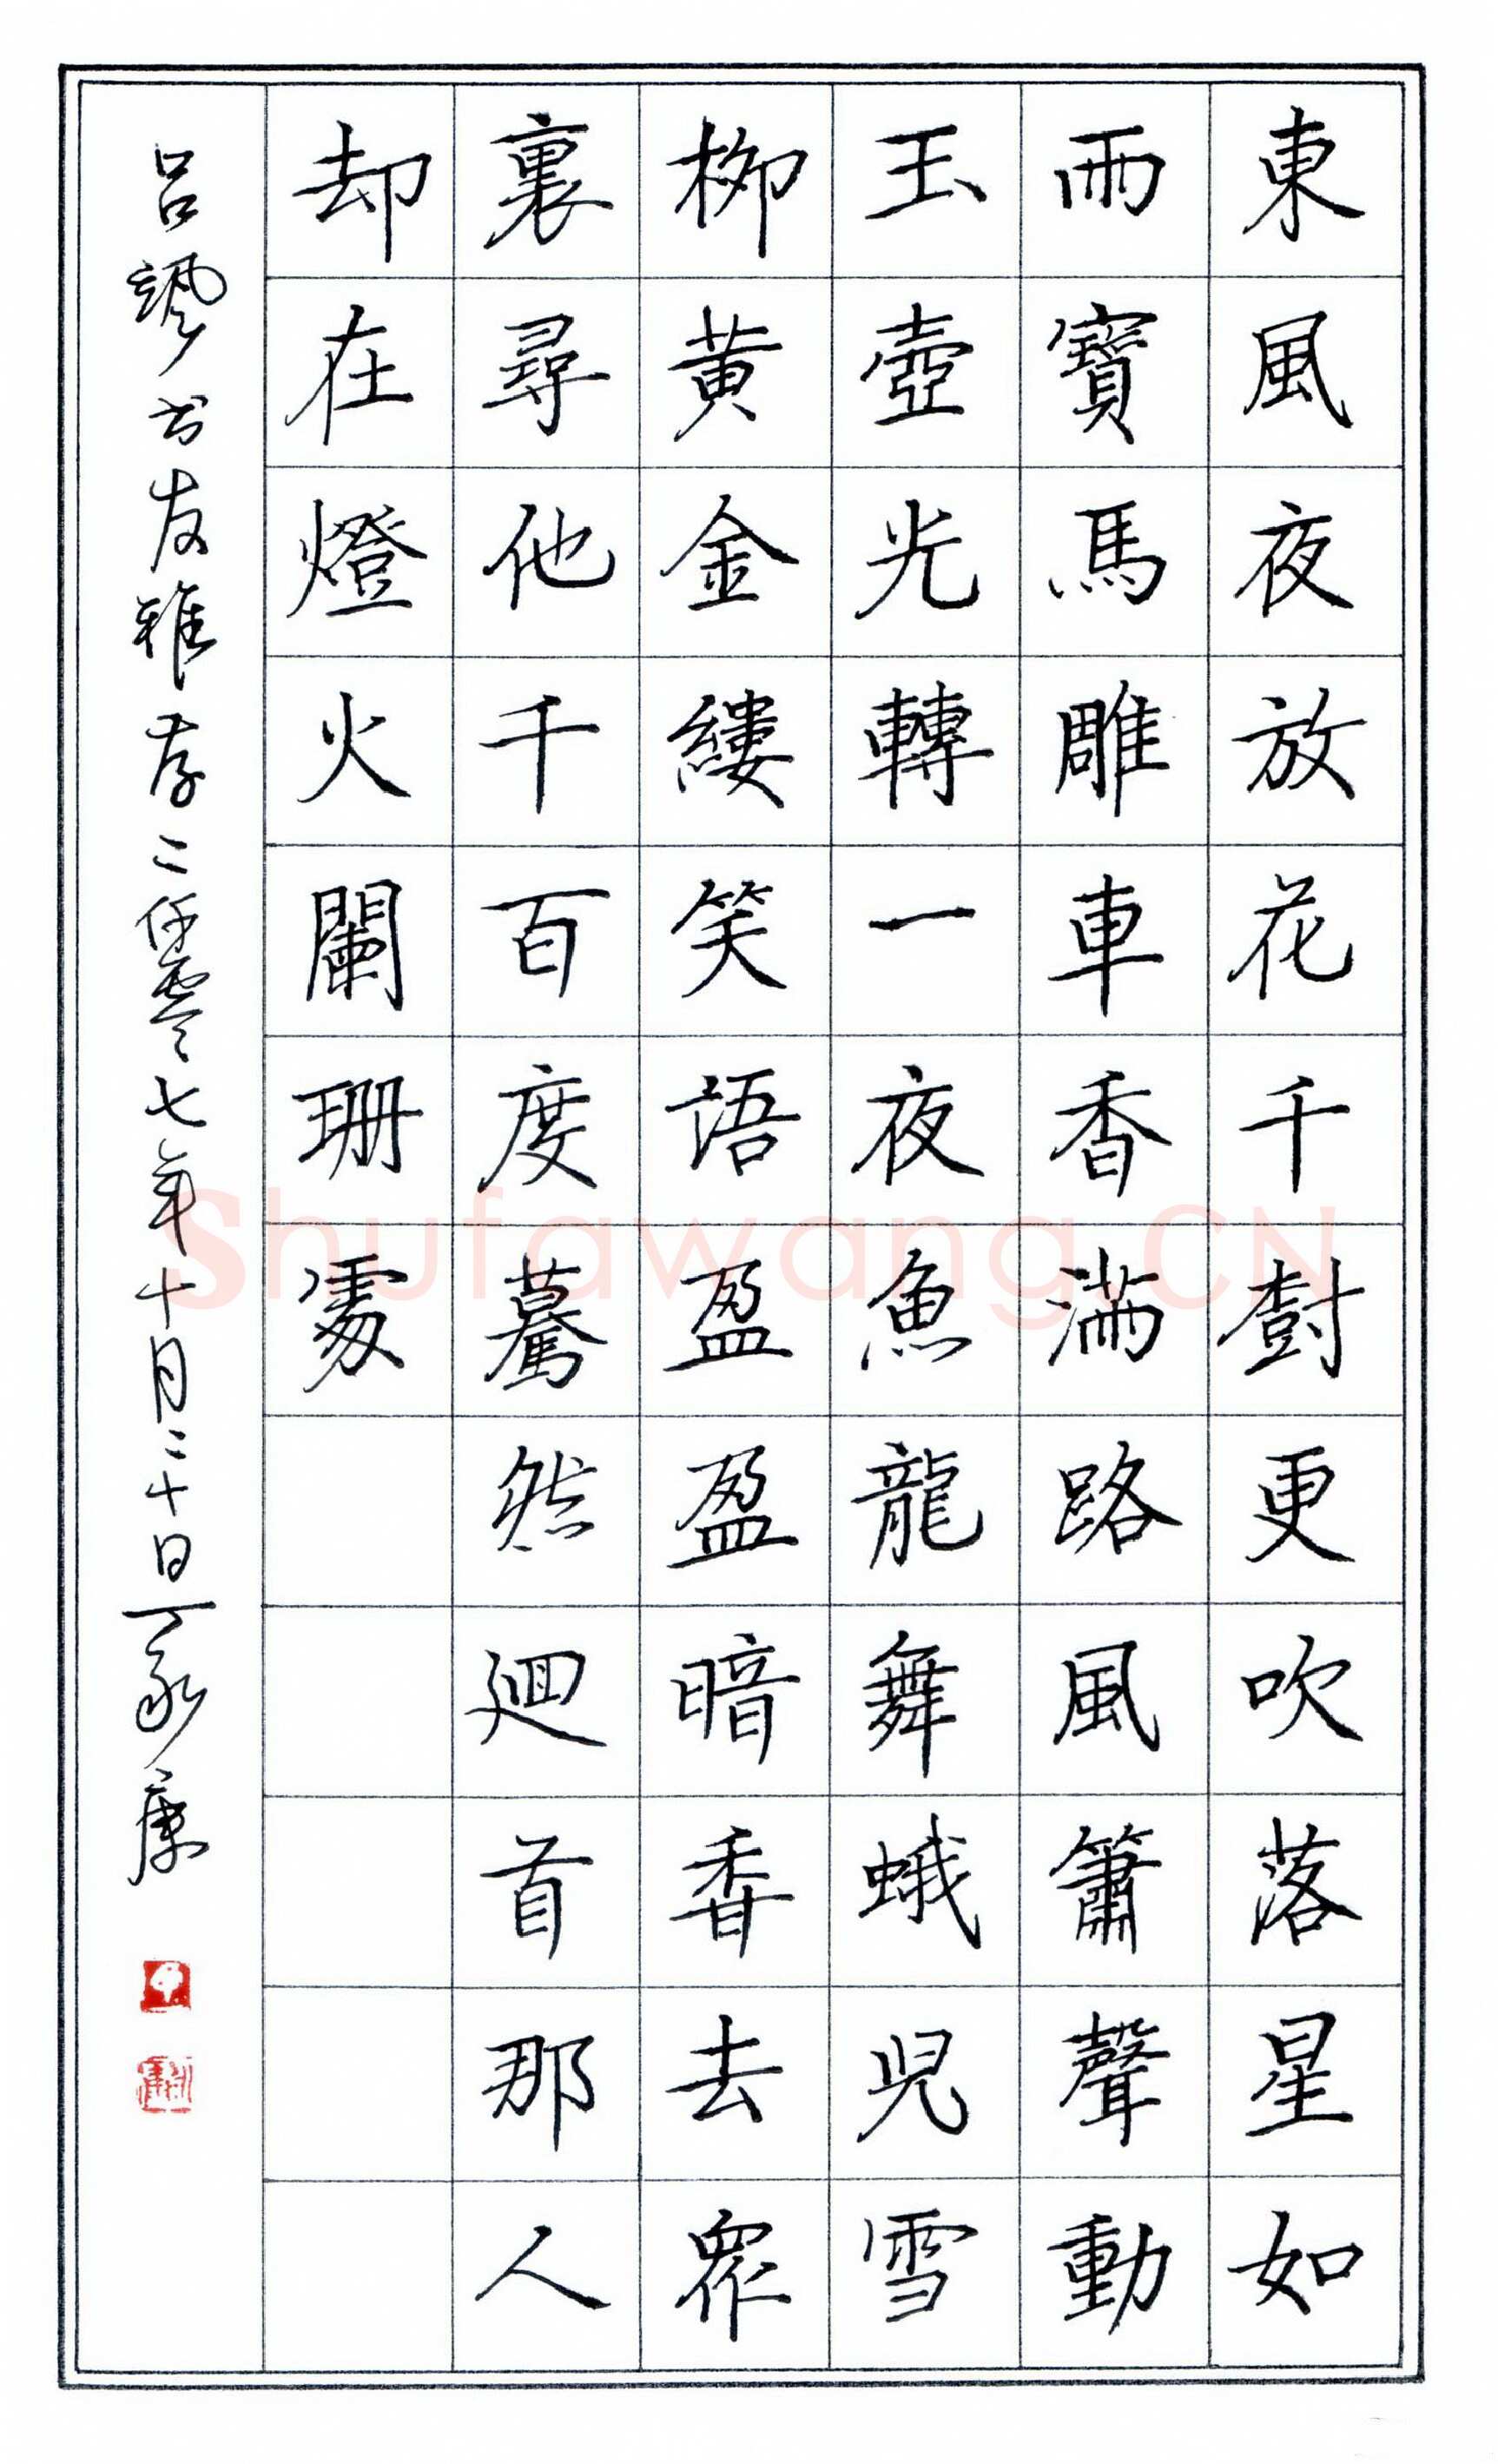 東風夜放花千樹更吹落星如
雨寶馬雕車香滿路風簫聲動
玉壺光轉一夜魚龍舞蛾兒雪
柳黄金縷笑語盈盈暗香去衆
裏尋他千百度驀然迴首那人
却在燈火闌珊處
吕飘书友雅存二仟零七年十月二十日丁永康
Shufawang.CN